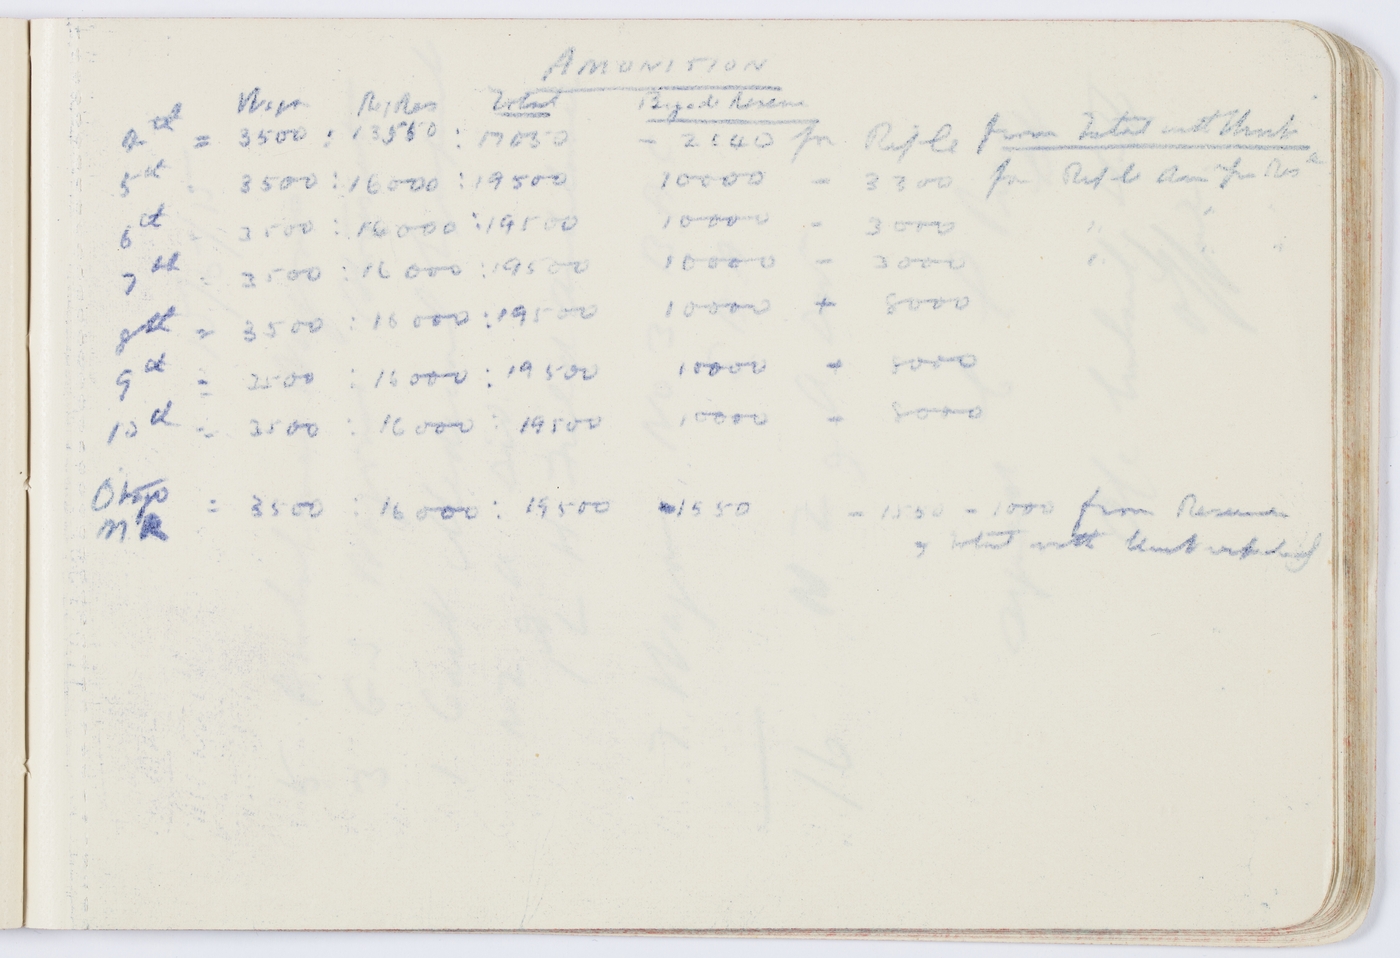 AMUNITION
Total Brigade Reserve
= 3500 : 13550 : 17050 - 2140 for Rifle from Total with Unit
5th - 3500 : 16000 : 19500 10000 - 3300 for Rifle
6th - 3500 : 16000 : 19500 10000 - 3000 " "
7th - 3500 : 16000 : 19500 10000 - 3000 " "
8th = 3500 : 16000 : 19500 10000 + 5000
9th = 3500 : 16000 : 19500 10000 + 5000
10th - 3500 : 16000 : 19500 10000 - 5000
Otago
MR = 3500 : 16000 : 19500 - 1550 - 1550 - 1000 from Reserve
with Unit